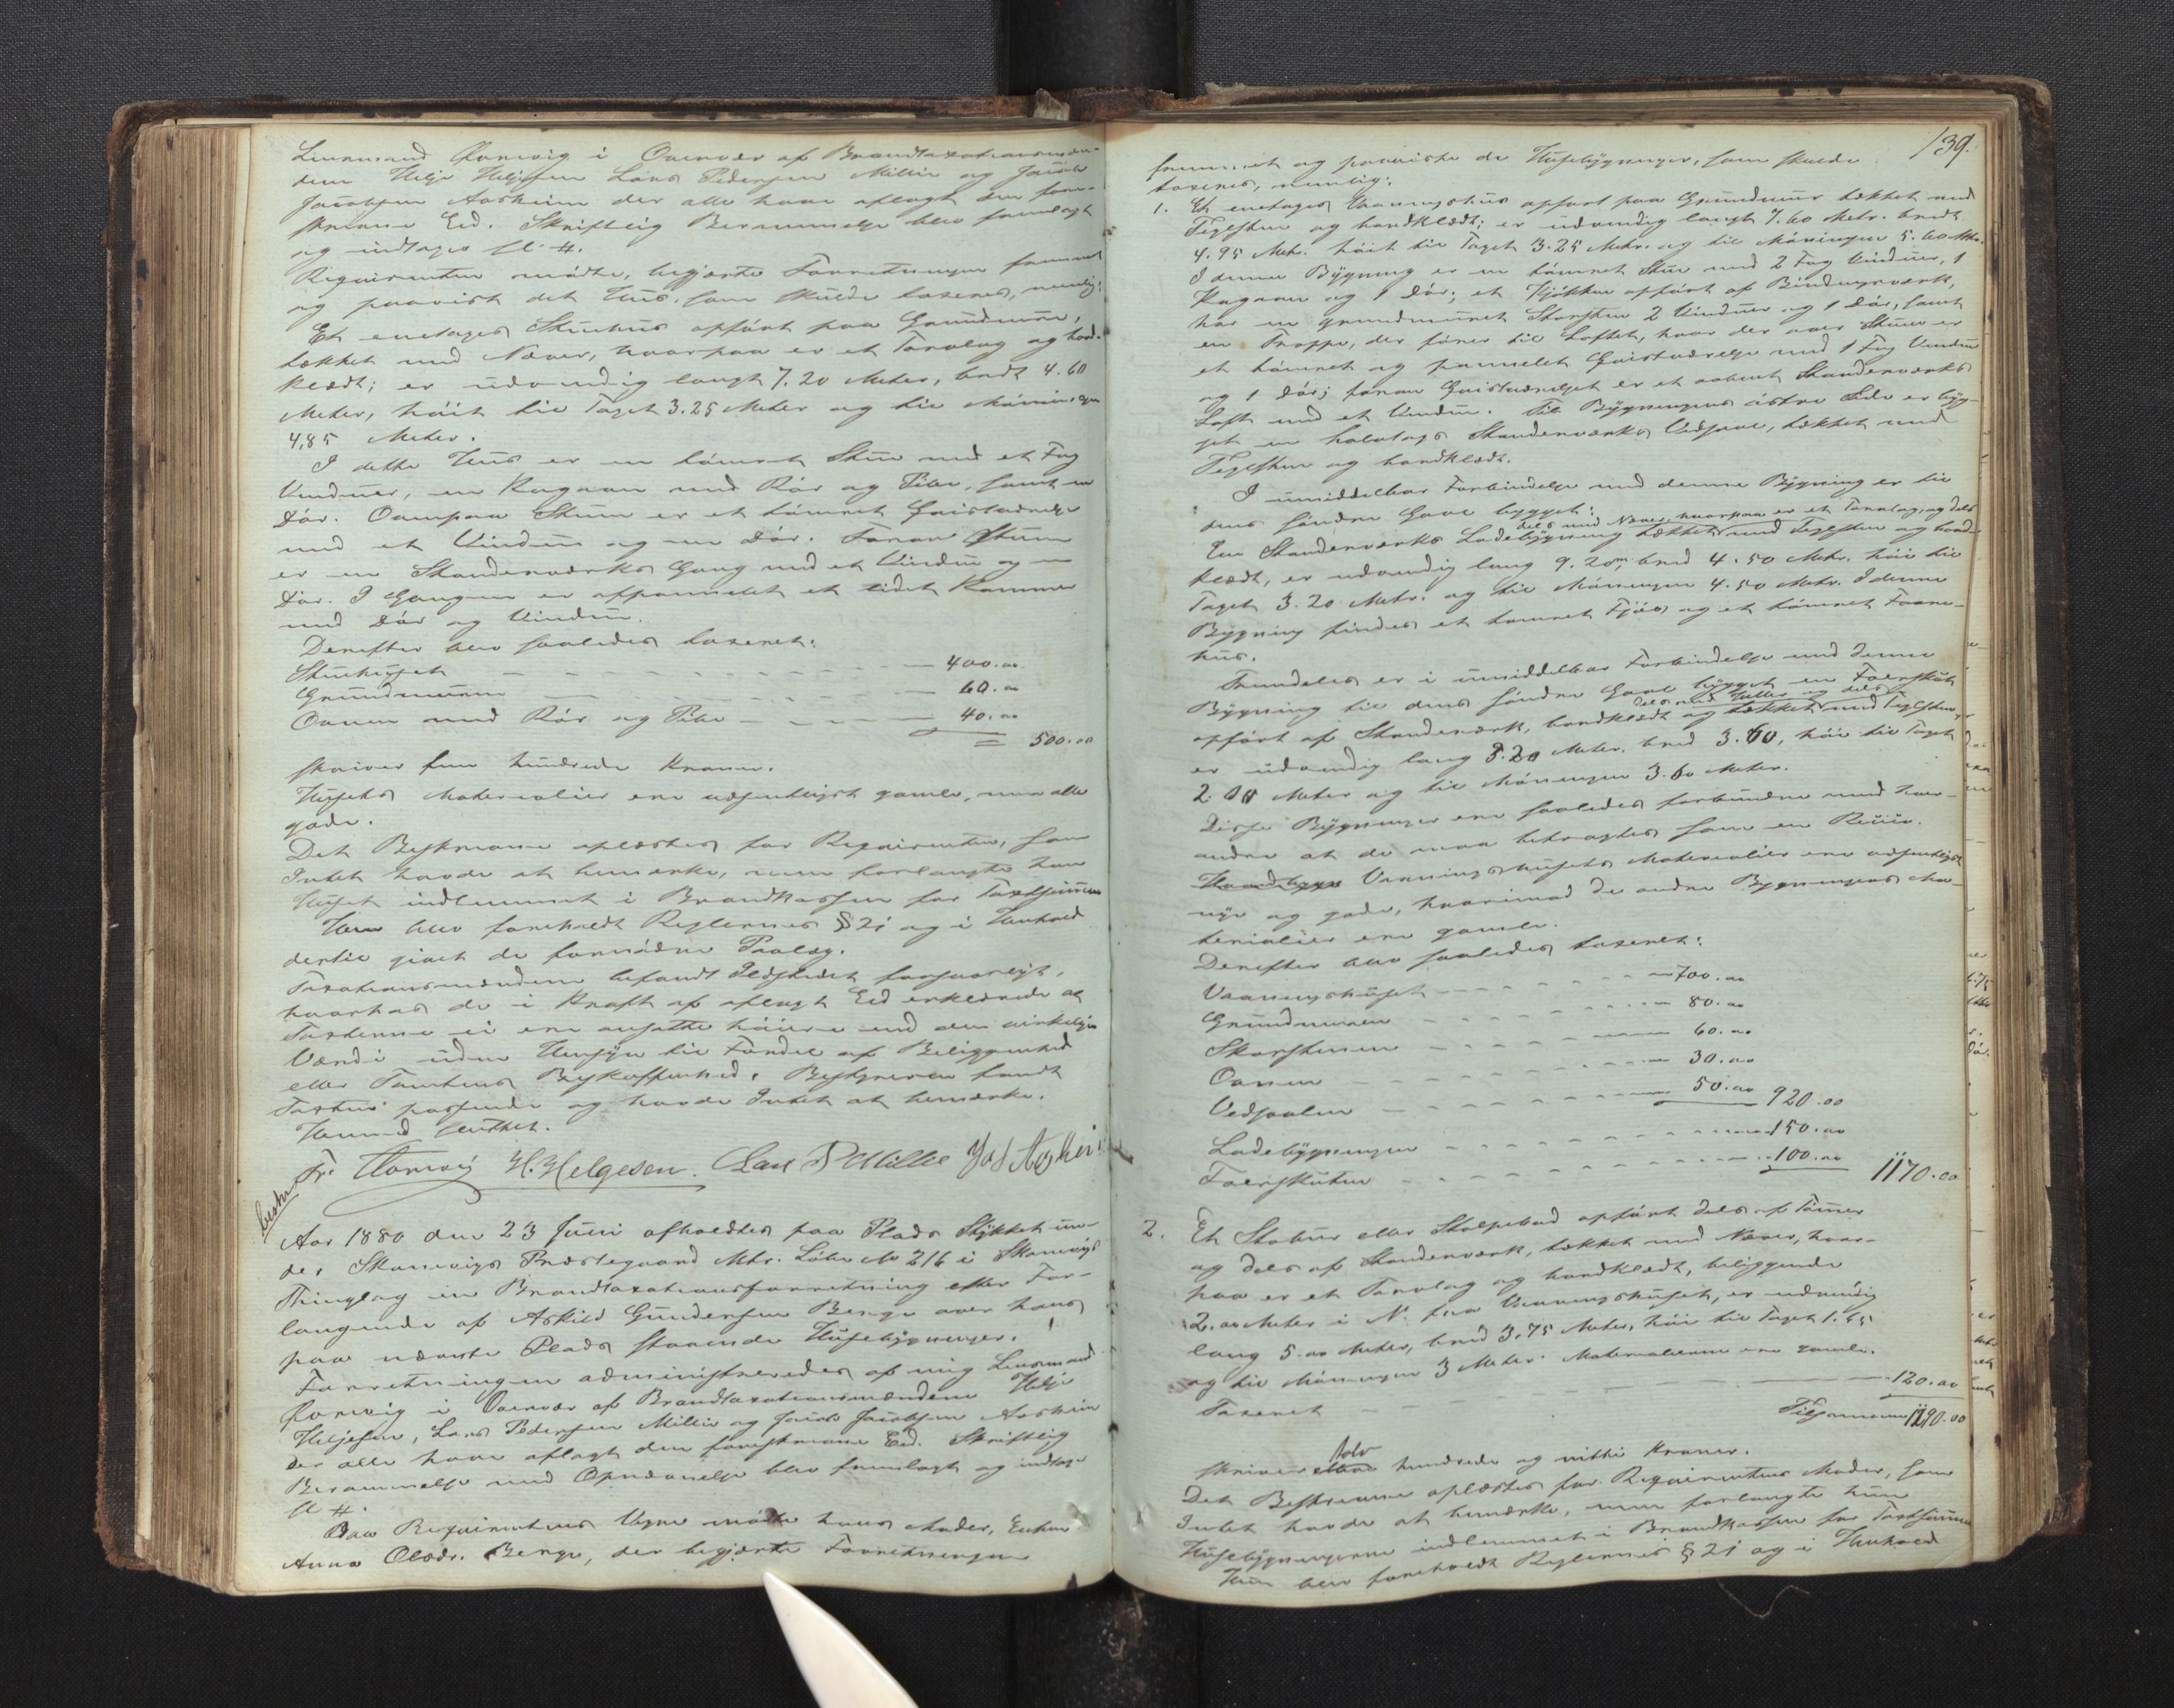 Lensmand Forvig i Overvær af Brandtaxationsmæn-
dene Helje Heljesen Lars Pedersen Millie og Jacob
Jacobsen Aarheim der alle have aflagt den fore-
skrevne Ed. Skriftlig Berammelse blev fremlagt
og indtages U. #.
Reqvirenten mødte, begjærte Forretningen fremmet
og paavist det Huus, som skulde taxeres, nemlig:
Et enetages Stuehuus opført paa Grundmuur,
tækket med Næver, hvorpaa er et Torvlag og bord-
klædt; er udvendig langt 7.20 Meter, bredt 4.60
Meter, høit til Taget 3.25 Meter og til Møningen
4,85 Meter.
I dette Huus er en tømret Stue med et Fag
Vinduer, en Kagovn med Rør og Pibe, samt en
Dør. Ovenpaa Stuen er et tømret Gaistværelse
med et Vindue og en Dør. Foran Stuen
er en Standerværks Gang med et Vindue og en
Dør. I Gangen er afpannelet et lidet Kammer
med Dør og Vindue.
Derefter blev saaledes taxeret:
Stuehuset 400.00
Grundmuren 60.00
Ovnen med Rør og Pibe 40.00
= 500.00
skriver fem hundrede Kroner.
Husets Materialier ere væsentligst gamle, men alle
gode.
Det Beskrevne oplæstes for Reqvirenten, som
Intet havde at bemærke, men forlangte han
Huset indlemmet i Brandkassen for Taxtsummen
Han blev foreholdt Reglernes § 21 og i Henhold
dertil givet de fornødne Paalæg.
Taxationsmændene befandt Ildstedet forsvarligt,
hvorhos de i Kraft af aflagt Ed erklærede at
Taxterne ei ere ansatte høiere end den virkelige
Værdi uden Hensyn til Fordel af Beliggenhed
eller Tomtens Beskaffenhed. Bestyreren fandt
Taxten passende og havde Intet at bemærke.
Hermed sluttet.
Fr. Forvig H. Helgesen. Lars P Millie Jac Aarhei
beskr
Aar 1880 den 23 Juni afholdtes paa Plads Stykket un-
der Skonevigs Præstegaard Mtr. Løbe No 216 i Skonevigs
Thinglag en Brandtaxationsforretning efter For-
langende af Askild Gundersen Berge over hans
paa nævnte Plads staaende Husebygninger.
Forretningen administreredes af mig Lensmand
Forvig i Overvær af Brandtaxationsmændene Helje
Heljesen, Lars Pedersen Millie og Jacob Jacobsen Aarheim
der alle have aflagt den foreskrevne Ed. Skriftlig
Berammelse med Opnævnelse blev fremlagt og indtages
U #.
Paa Reqvirentens Vegne mødte hans Moder, Enken
Anna Olsdr. Berge, der begjærte Forretningen
139.
fremmet og paaviste de Husebygninger, som skulde
taxeres, nemlig:
1. Et enetages Vaaningshuus opført paa Grundmuur tækket med
Teglsten og bordklædt; er udvendig langt 7.60 Metr. bredt
4.95 Metr. høit til Taget 3.25 Metr. og til Møningen 5.60 Mtr.
I denne Bygning er en tømret Stue med 2 Fag Vinduer, 1
Kagovn og 1 Dør; et Kjøkken opført af Bindingsværk,
har en grundmuret Skorsten 2 Vinduer og 1 Dør, samt
en Trappe, der fører til Loftet, hvor der over Stuen er
et tømret og pannelet Gaistværelse med 1 Fag Vindue
og 1 Dør; foran Gaistværelset er et aabent Standerværks
Loft med et Vindue. Til Bygningens østre Side er byg-
get en halvtags Standerværks Vedsval, tækket med
Teglsten og bordklædt.
I umiddelbar Forbindelse med denne Bygning er til
dens søndre Gavl bygget:
dels med Næver, hvorpaa er et Torvlag, og dels
En Standerværks Ladebygning tækket med Teglsten og bord-
klædt, er udvendig lang 9.20m, bred 4.50 Metr. høi til
Taget 3.20 Metr. og til Møningen 4.50 Metr. I denne
Bygning findes et tømret Fjøs og et tømret Faare-
huus.
Fremdeles er i umiddelbar Forbindelse med denne
Bygning til dens søndre Gavl bygget en Foerskut
dels med Heller og dels
opført af Standerværk, bordklædt og tækket med Teglsten,
er udvendig lang 8.20 Meter, bred 3.60, høi til Taget
2.00 Meter og til Møningen 3.60 Meter.
Disse Bygninger ere saaledes forbundne med hver-
andre at de maa betragtes som en Ruin.
Vaaningshusets Materialier ere væsentligst
nye og gode, hvorimod de andre Bygningers Ma-
terialier ere gamle.
Derefter blev saaledes taxeret:
Vaaningshuset 700.00
Grundmuren 80.00
Skorstenen 60.00
Ovnen 30.00
Vedsvalen 50.00 920.00
Ladebygningen 150.00
Foerskuten 100.00 1170.00
2. Et Stabur eller Stolpebod opført dels af Tømmer
og dels af Standerværk, tækket med Næver, hvor-
paa er et Torvlag og bordklædt, beliggende
2.00 Meter i N. fra Vaaningshuset, er udvendig
lang 5.00 Meter, bred 3.75 Meter, høi til Taget 1.55
og til Møningen 3 Meter. Materialierne ere gamle.
Taxeret 120.00
Tilsammen 1290.00
tolv
skriver elleve hundrede og nitti Kroner.
Det Beskrevne oplæstes for Reqvirentens Moder, som
Intet havde at bemærke, men forlangte hun
Husebygningerne indlemmet i Brandkassen for Taxtsummen
Hun blev foreholdt Reglernes § 21 og i Henhold